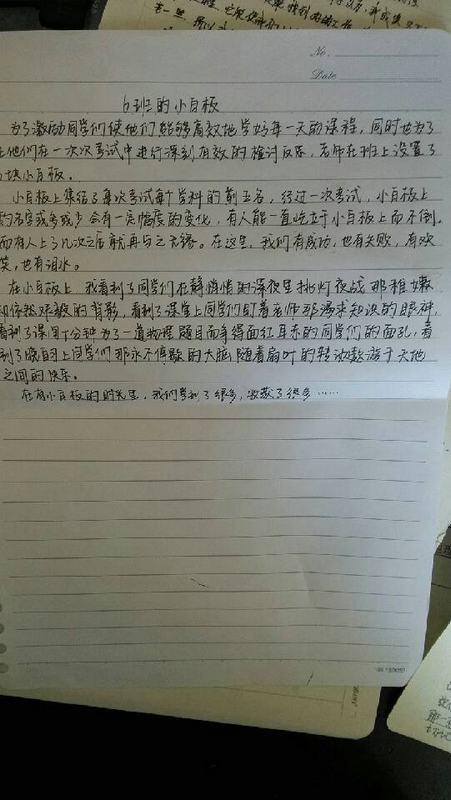 No.
Date
6班的小白板
为了激励同学们使他们能够高效地学好每一天的课程，同时也为了
让他们在一次次考试中进行深刻有效的检讨反思，老师在班上设置了
块小白板。
小白板上集结了每次考试每个学科的前五名，经过一次考试，小白板上
的名字或多或少会有一定幅度的变化，有人能一直屹立于小白板上而不倒，
而有人上了几次之后就再与之无缘。在这里，我们有成功，也有失败，有欢
笑，也有泪水。
在小白板上，我看到了同学们在静悄悄的深夜里挑灯夜战那稚嫩
却倍熬艰辛的背影，看到了课堂上同学们盯着老师那渴求知识的眼神，
看到了课间十分钟为了一道物理题目而争得面红耳赤的同学们的面孔，看
到了晚自上同学们那永不停歇的大脑随着扇叶的转动遨游于天地
之间的快乐。
在有小白板的时光里，我们学到了很多，收获了很多……